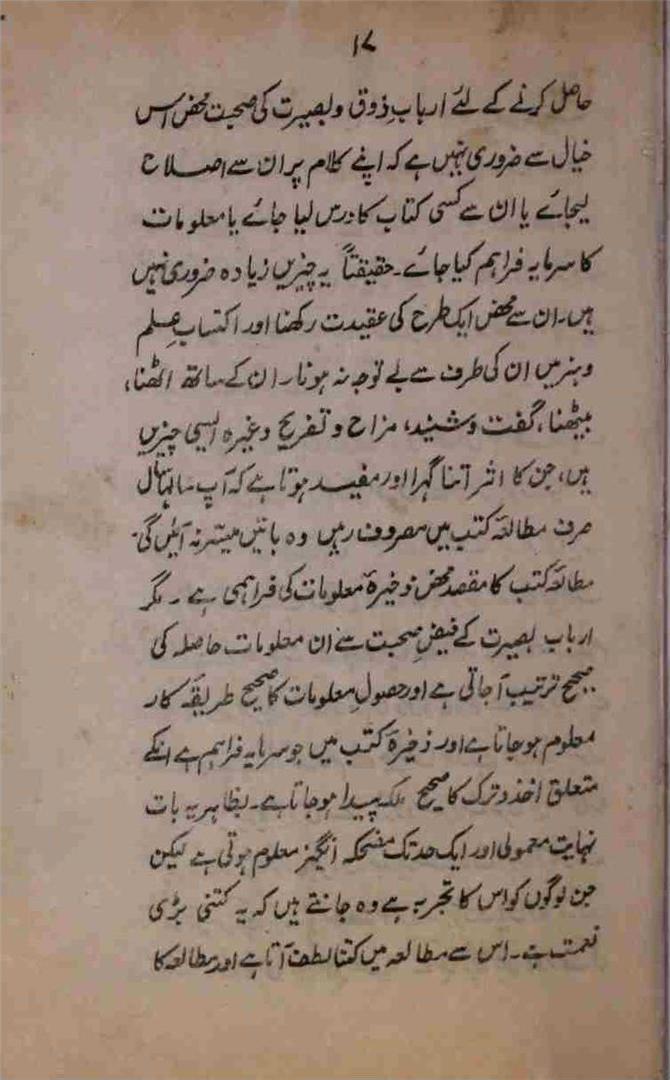 ۱۷
حاصل کرنے کے لئے ارباب ذوق و بصیرت کی صحبت محض اس
خیال سے ضروری نہیں ہے کہ اپنے کلام پر ان سے اصلاح
لیجائے یا ان سے کسی کتاب کا درس لیا جائے یا معلومات
کا سرمایہ فراہم کیا جائے۔ حقیقتاً یہ چیزیں زیادہ ضروری نہیں
ہیں۔ ان سے محض ایک طرح کی عقیدت رکھنا اور اکتساب علم
و ہنر میں ان کی طرف سے بے توجہ نہ ہونا۔ ان کے ساتھ اٹھنا،
بیٹھنا، گفت و شنید، مزاح و تفریح وغیرہ ایسی چیزیں
ہیں، جن کا اثر اتنا گہرا اور مفید ہوتا ہے کہ آپ سالہا سال
صرف مطالعۂ کتب میں مصروف رہیں وہ باتیں میسر نہ آئیں گی۔
مطالعۂ کتب کا مقصد محض ذخیرۂ معلومات کی فراہمی ہے ۔ مگر
ارباب بصیرت کے فیضِ صحبت سے ان معلومات حاصلہ کی
صحیح ترتیب آجاتی ہے اور حصولِ معلومات کا صحیح طریقۂ کار
معلوم ہوجاتا ہے اور ذخیرۂ کتب میں جو سرمایہ فراہم ہے انکے
متعلق اخذ و ترک کا صحیح ملکہ پیدا ہوجاتا ہے۔ بظاہر یہ بات
نہایت معمولی اور ایک حد تک مضحکہ انگیز معلوم ہوتی ہے لیکن
جن لوگوں کو اس کا تجربہ ہے وہ جانتے ہیں کہ یہ کتنی بڑی
نعمت ہے۔ اس سے مطالعہ میں کتنا لطف آتا ہے اور مطالعہ کا